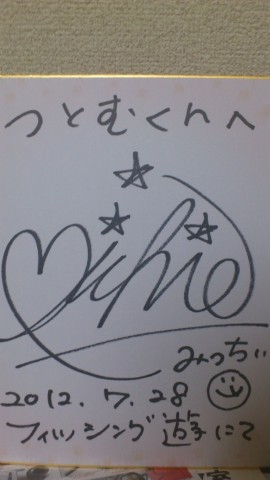 つとむくんへ
Michie
みっちぃ
2012.7.28
フィッシング遊にて